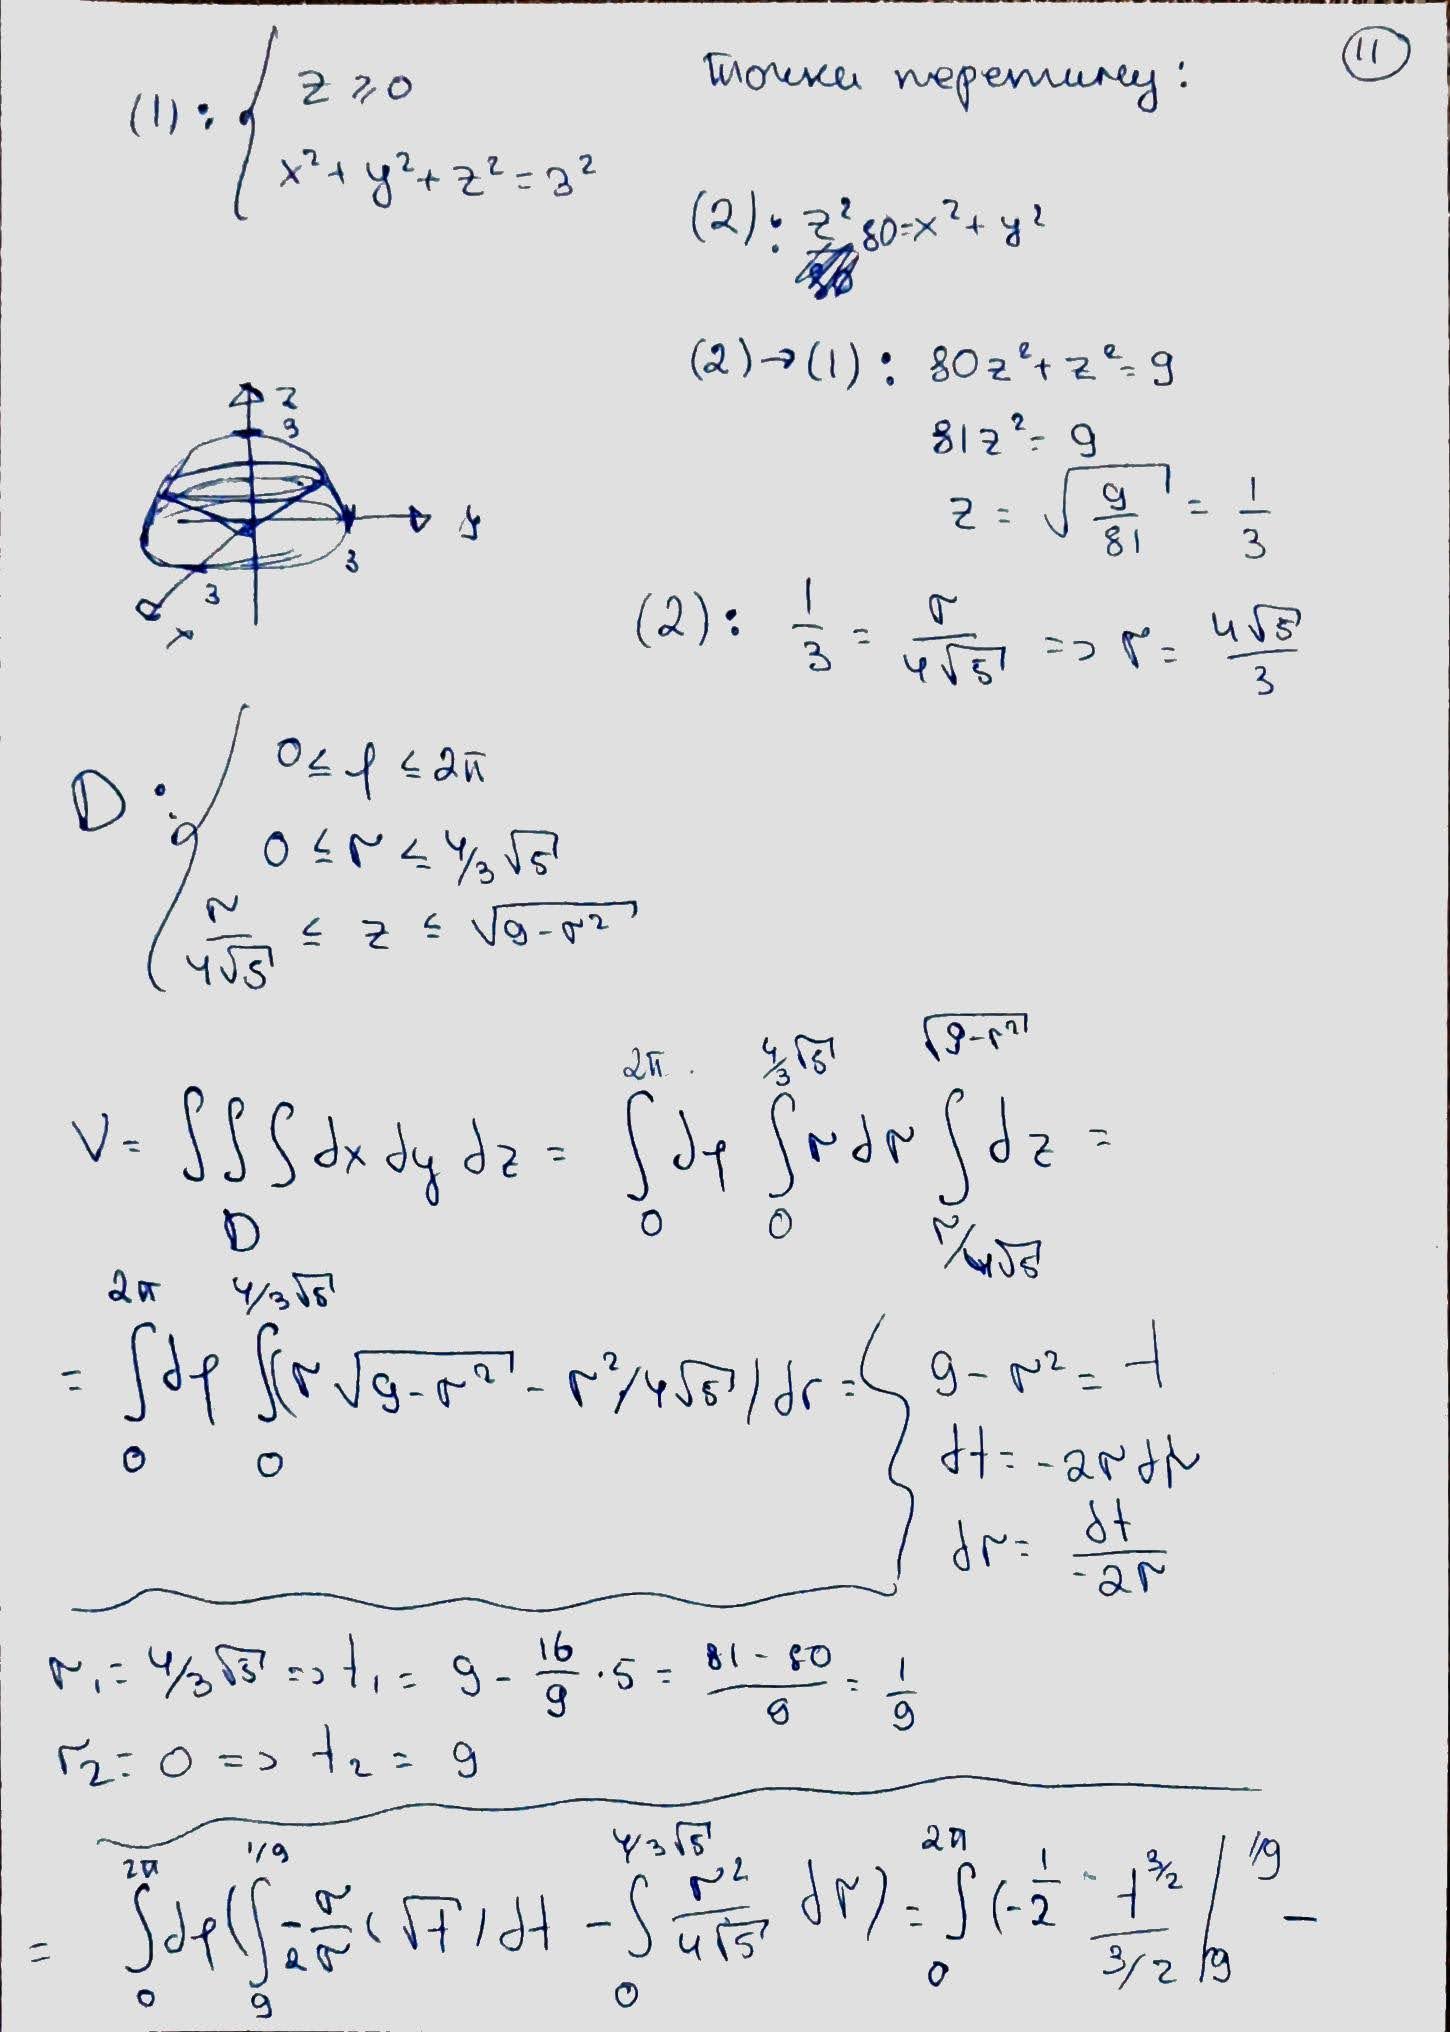 11
(1): { z ⩾ 0
x² + y² + z² = 3²
Точки перетину:
(2): z² 80 = x² + y²
(2) → (1): 80z² + z² = 9
81z² = 9
z = √(9/81) = 1/3
(2): 1/3 = r/(4√5) => r = 4√5/3
z
3
y
3
3
x
D: { 0 ≤ φ ≤ 2π
0 ≤ r ≤ 4/3 √5
r/(4√5) ≤ z ≤ √(9-r²)
V = ∭_D dx dy dz = ∫_0^{2π} dφ ∫_0^{4/3 √5} r dr ∫_{r/4√5}^{√(9-r²)} dz =
= ∫_0^{2π} dφ ∫_0^{4/3 √5} (r √(9-r²) - r²/4√5) dr = { 9 - r² = t
dt = -2r dr
dr = dt/(-2r)
r₁ = 4/3 √5 => t₁ = 9 - 16/9 · 5 = (81 - 80)/9 = 1/9
r₂ = 0 => t₂ = 9
= ∫_0^{2π} dφ (∫_9^{1/9} - r/(2r) (√t) dt - ∫_0^{4/3 √5} r²/(4√5) dr) = ∫_0^{2π} (-1/2 · t^{3/2}/(3/2) |_9^{1/9} -